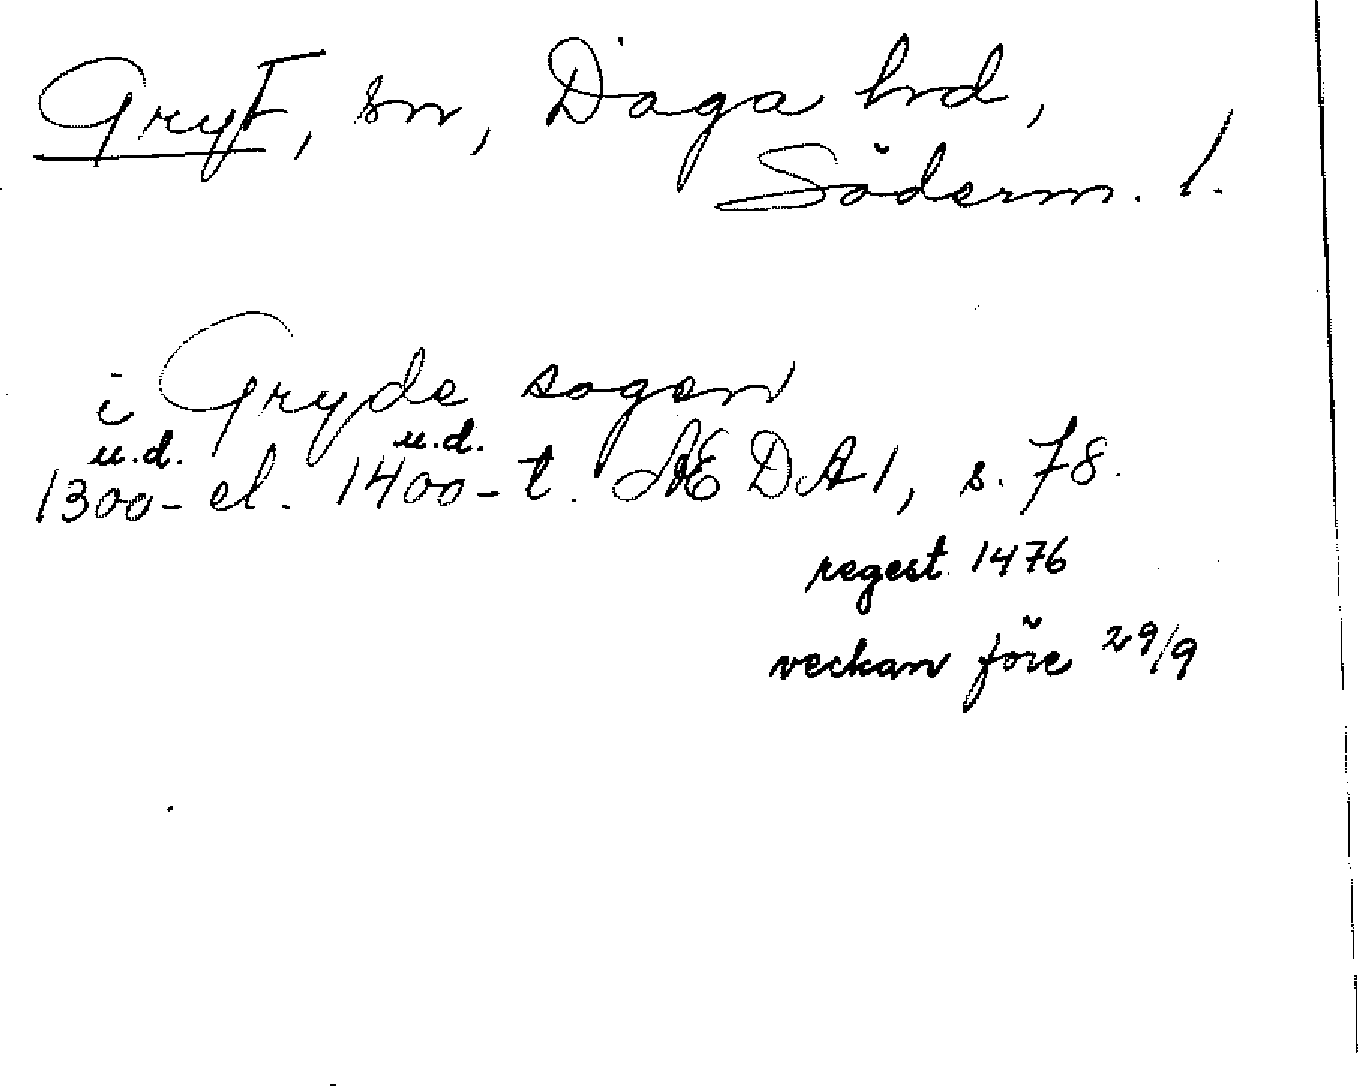 Gryt, sn, Daga hrd,
Söderm. l.
i Gryde sogen
u.d. u.d.
1300- el. 1400-t. ÆDA 1, s. 78.
regest 1476
veckan före 29/9